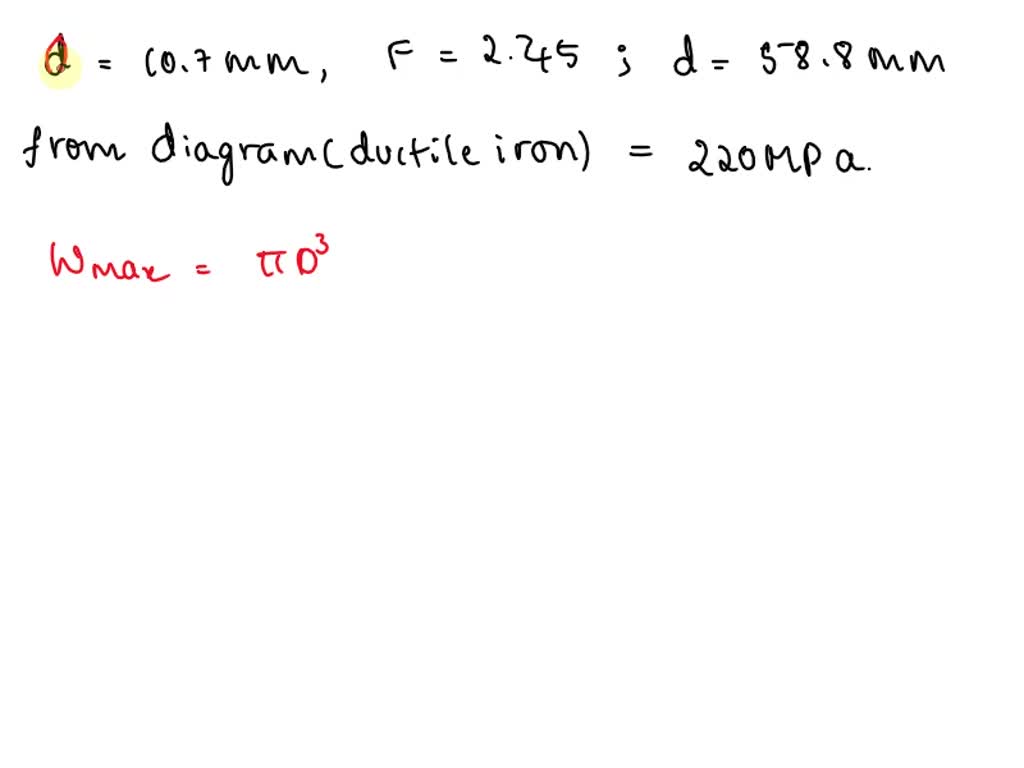 d = 10.7 mm, F = 2.745 ; d = 58.8 mm
from diagram (ductile iron) = 220 MPa.
Wmax = πD³